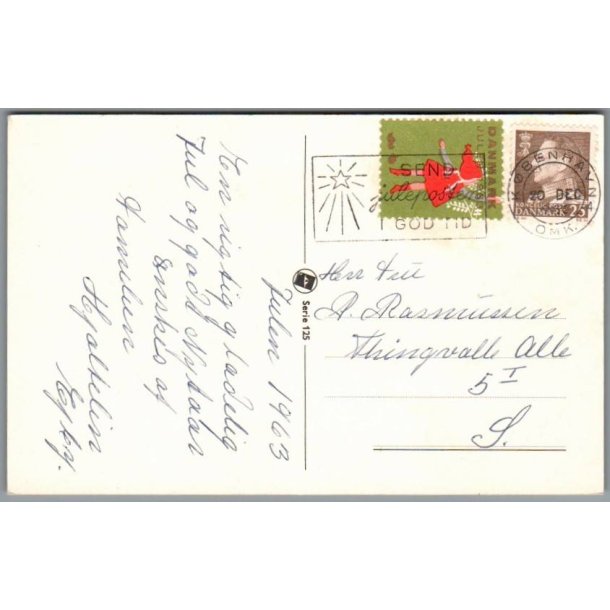 Julen 1963
En rigtig glædelig
Jul og godt Nytaar
ønskes af
Familien
Hjaltelin
SEND
juleposten
I GOD TID
DANMARK
JUL
KØBENHAVN
20 DEC
OMK.
DANMARK 25
Serie 125
Herr Fru
A. Rasmussen
Thingvalla Alle
5 I
S.